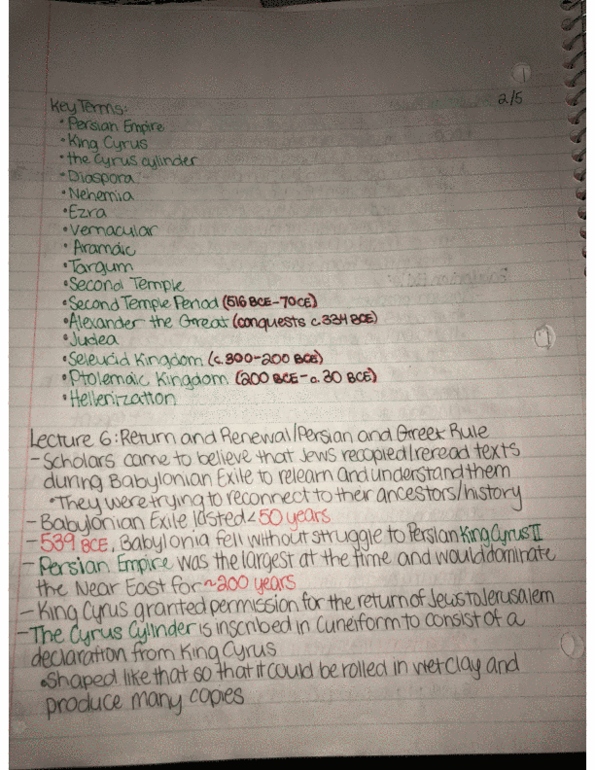 2/5
Key Terms:
• Persian Empire
• King Cyrus
• the Cyrus cylinder
• Diaspora
• Nehemia
• Ezra
• Vernacular
• Aramaic
• Targum
• Second Temple
• Second Temple Period (516 BCE-70 CE)
• Alexander the Great (conquests c.334 BCE)
• Judea
• Seleucid Kingdom (c.300-200 BCE)
• Ptolemaic Kingdom (200 BCE-c.30 BCE)
• Hellenization
Lecture 6: Return and Renewal/Persian and Greek Rule
- Scholars came to believe that Jews recopied/reread texts
during Babylonian Exile to relearn and understand them
• They were trying to reconnect to their ancestors/history
- Babylonian Exile lasted < 50 years
- 539 BCE, Babylonia fell without struggle to Persian King Cyrus II
- Persian Empire was the largest at the time and would dominate
the Near East for ~200 years
- King Cyrus granted permission for the return of Jews to Jerusalem
- The Cyrus Cylinder is inscribed in Cuneiform to consist of a
declaration from King Cyrus
• Shaped like that so that it could be rolled in wet clay and
produce many copies